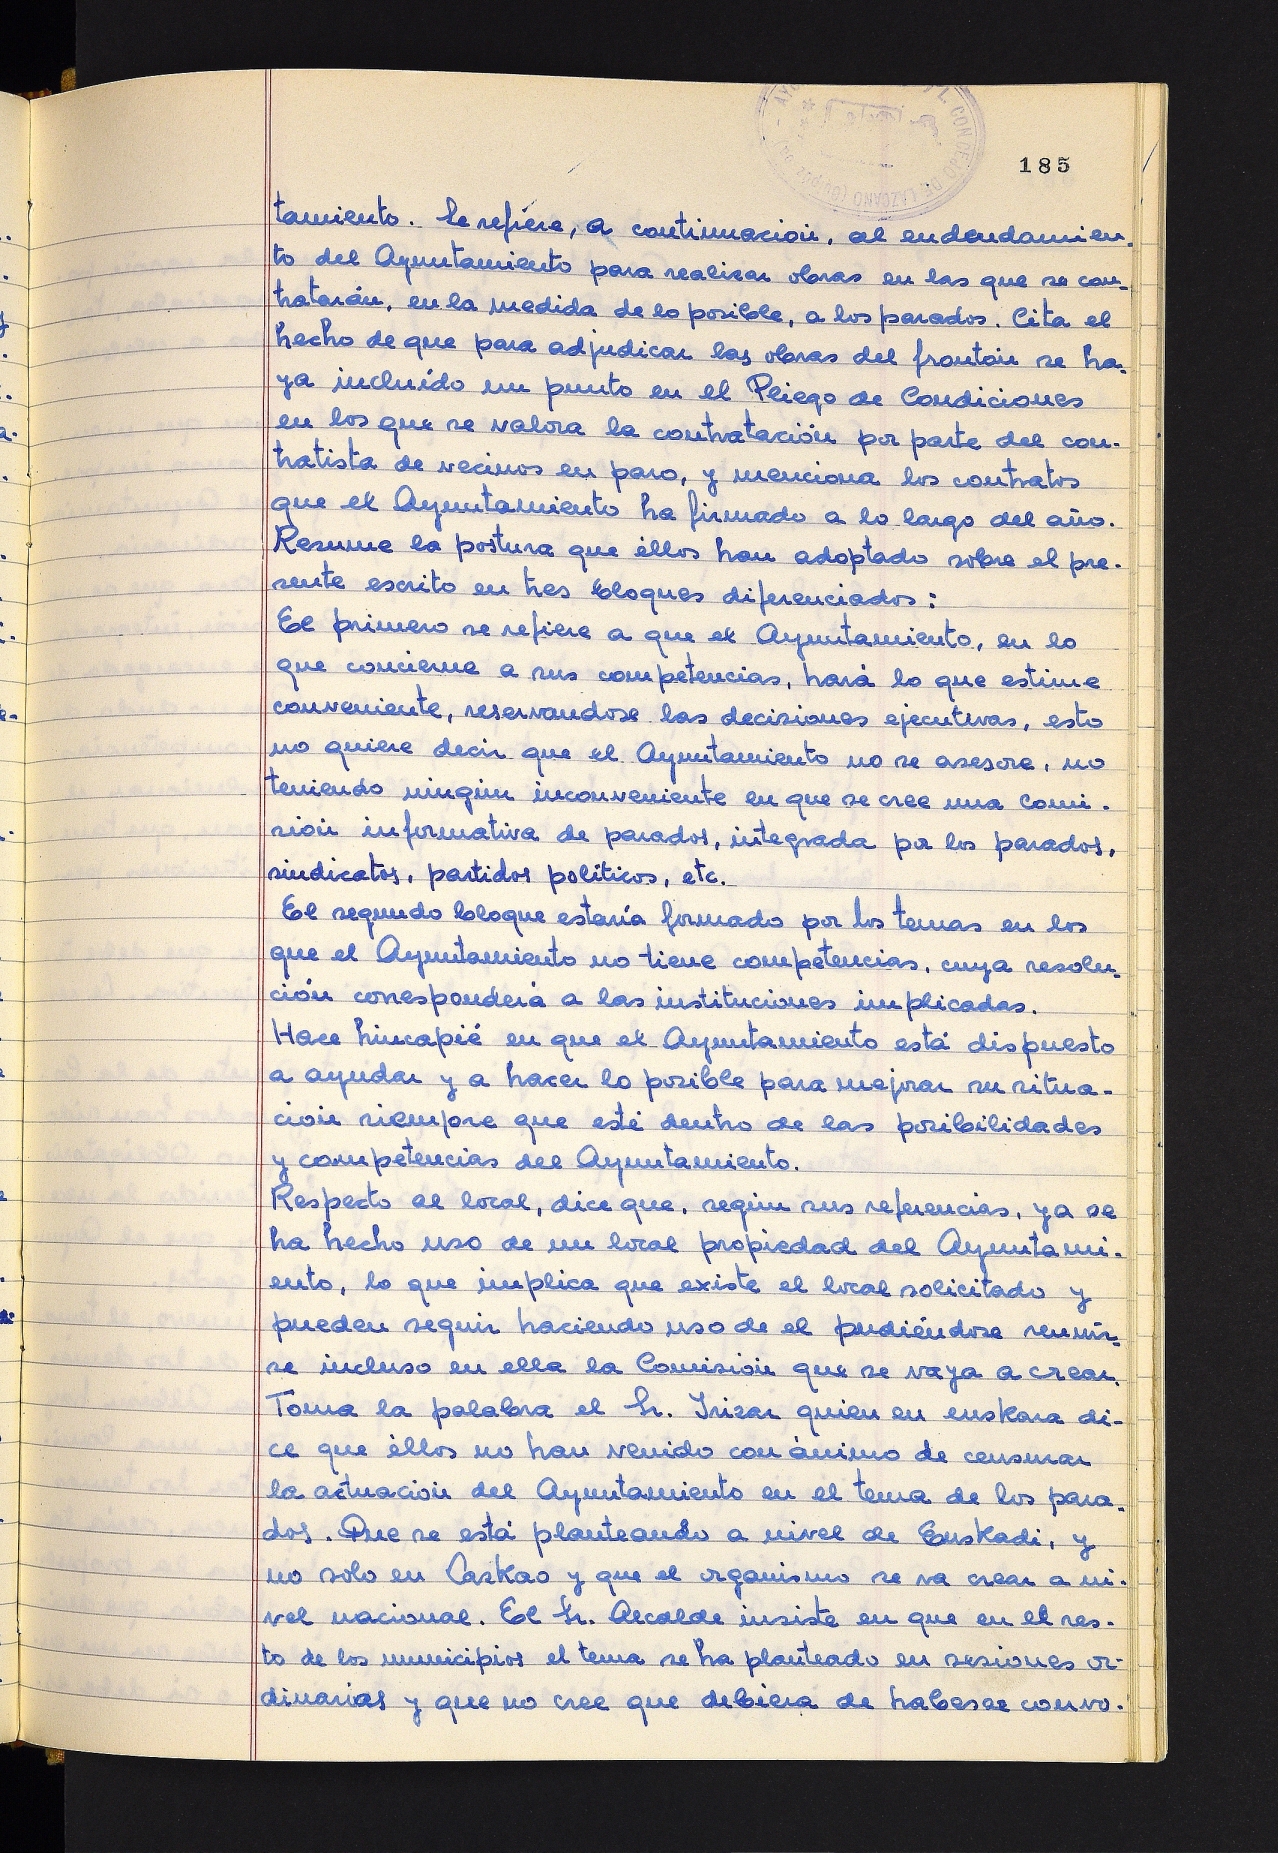 185
tamiento. Se refiere, a continuación, al endeudamien-
to del Ayuntamiento para realizar obras en las que se con-
tratarán, en la medida de lo posible, a los parados. Cita el
hecho de que para adjudicar las obras del frontón se ha-
ya incluído un punto en el Pliego de Condiciones
en los que se valora la contratación por parte del con-
tratista de vecinos en paro, y menciona los contratos
que el Ayuntamiento ha firmado a lo largo del año.
Resume la postura que éllos han adoptado sobre el pre-
sente escrito en tres bloques diferenciados:
El primero se refiere a que el Ayuntamiento, en lo
que concierne a sus competencias, hará lo que estime
conveniente, reservandose las decisiones ejecutivas, esto
no quiere decir que el Ayuntamiento no se asesore, no
teniendo ningún inconveniente en que se cree una Comi-
sión informativa de parados, integrada por los parados,
sindicatos, partidos políticos, etc.
El segundo bloque estaría formado por los temas en los
que el Ayuntamiento no tiene competencias, cuya resolu-
ción corresponderá a las instituciones implicadas.
Hace hincapié en que el Ayuntamiento está dispuesto
a ayudar y a hacer lo posible para mejorar su situa-
ción siempre que esté dentro de las posibilidades
y competencias del Ayuntamiento.
Respecto al local, dice que, según sus referencias, ya se
ha hecho uso de un local propiedad del Ayuntami-
ento, lo que implica que existe el local solicitado y
pueden seguir haciendo uso de el pudiéndose reunir-
se incluso en ella la Comisión que se vaya a crear.
Toma la palabra el Sr. Irizar quien en euskara di-
ce que éllos no han venido con ánimo de censurar
la actuación del Ayuntamiento en el tema de los para-
dos. Que se está planteando a nivel de Euskadi, y
no solo en Lazkao y que el organismo se va crear a ni-
vel nacional. El Sr. Alcalde insiste en que en el res-
to de los municipios el tema se ha planteado en sesiones or-
dinarias y que no cree que debiera de haberse convo-
CONCEJO DE LAZCANO